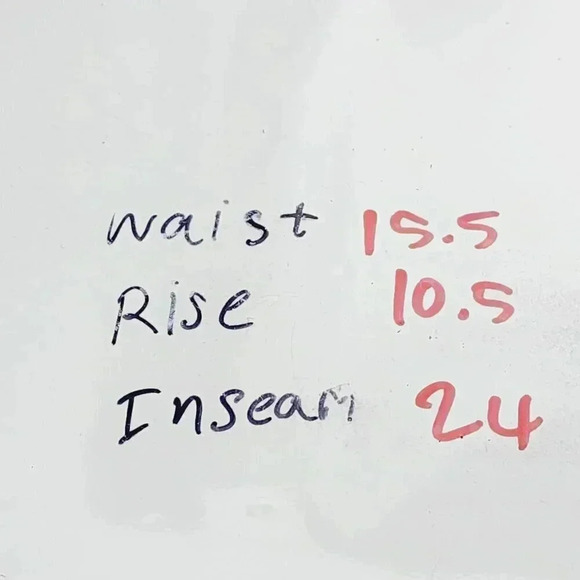 Waist 15.5
Rise 10.5
Inseam 24